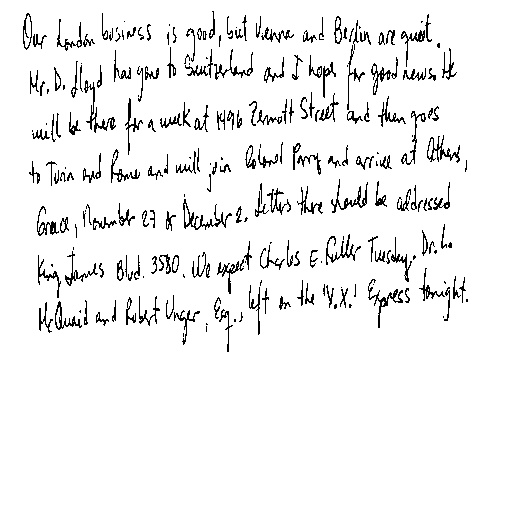 Our London business is good, but Vienna and Berlin are quiet.
Mr. D. Lloyd has gone to Switzerland and I hope for good news. He
will be there for a week at 1496 Zermott Street and then goes
to Turin and Rome and will join Colonel Parry and arrive at Athens,
Greece, November 27 or December 2. Letters there should be addressed
King James Blvd. 3580. We expect Charles E. Fuller Tuesday. Dr. L.
McQuaid and Robert Unger, Esq., left on the 'V.X.' Express tonight.